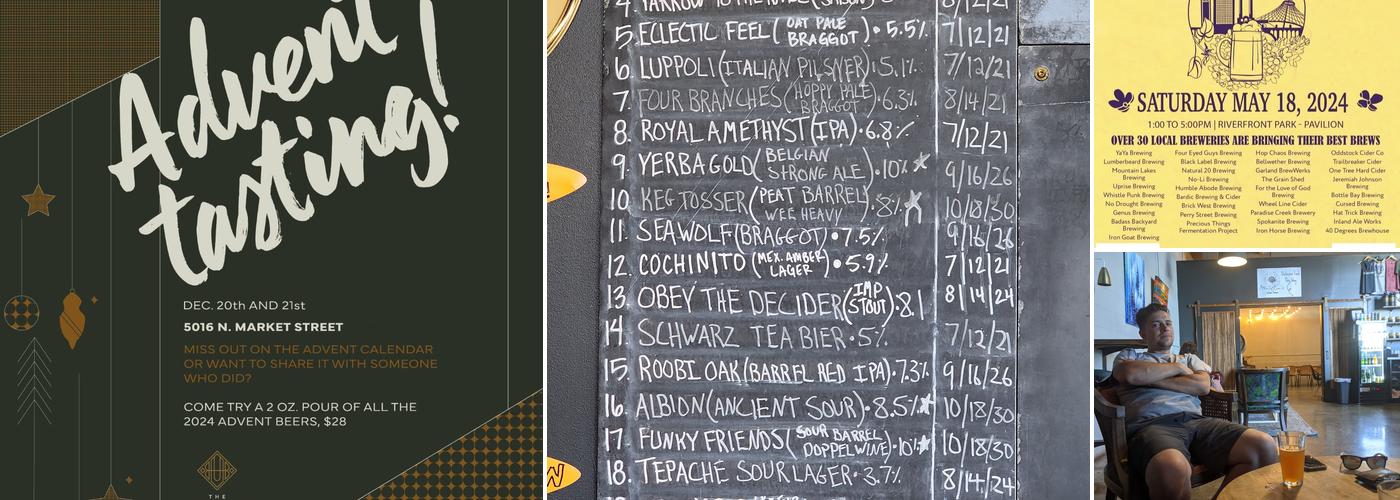 Advent
tasting!
DEC. 20th AND 21st
5016 N. MARKET STREET
MISS OUT ON THE ADVENT CALENDAR
OR WANT TO SHARE IT WITH SOMEONE
WHO DID?
COME TRY A 2 OZ. POUR OF ALL THE
2024 ADVENT BEERS, $28
THE
5. ECLECTIC FEEL (OAT PALE BRAGGOT) • 5.5% 7/12/21
6. LUPPOLI (ITALIAN PILSNER) 5.1% 7/12/21
7. FOUR BRANCHES (HOPPY PALE BRAGGOT) • 6.3% 8/14/21
8. ROYAL AMETHYST (IPA) • 6.8% 7/12/21
9. YERBA GOLD (BELGIAN STRONG ALE) • 10% 9/16/26
10. KEG TOSSER (PEAT BARREL WEE HEAVY) • 8% 10/18/30
11. SEAWOLF (BRAGGOT) • 7.5% 9/16/26
12. COCHINITO (MEX. AMBER LAGER) • 5.9% 7/12/21
13. OBEY THE DECIDER (IMP STOUT) • 8.1 8/14/24
14. SCHWARZ TEA BIER • 5% 7/12/21
15. ROOBI OAK (BARREL RED IPA) • 7.3% 9/16/26
16. ALBION (ANCIENT SOUR) • 8.5% 10/18/30
17. FUNKY FRIENDS (SOUR BARREL DOPPELWINE) • 10% 10/18/30
18. TEPACHE SOUR LAGER • 3.7% 8/14/24
SATURDAY MAY 18, 2024
1:00 TO 5:00PM | RIVERFRONT PARK - PAVILION
OVER 30 LOCAL BREWERIES ARE BRINGING THEIR BEST BREWS
YaYa Brewing
Lumberbeard Brewing
Mountain Lakes
Brewing
Uprise Brewing
Whistle Punk Brewing
No Drought Brewing
Genus Brewing
Badass Backyard
Brewing
Iron Goat Brewing
Four Eyed Guys Brewing
Black Label Brewing
Natural 20 Brewing
No-Li Brewing
Humble Abode Brewing
Bardic Brewing & Cider
Brick West Brewing
Perry Street Brewing
Precious Things
Fermentation Project
Hop Chaos Brewing
Bellwether Brewing
Garland BrewWerks
The Grain Shed
For the Love of God
Brewing
Wheel Line Cider
Paradise Creek Brewery
Spokanite Brewing
Iron Horse Brewing
Oddstock Cider Co
Trailbreaker Cider
One Tree Hard Cider
Jeremiah Johnson
Brewing
Bottle Bay Brewing
Cursed Brewing
Hat Trick Brewing
Inland Ale Works
40 Degrees Brewhouse